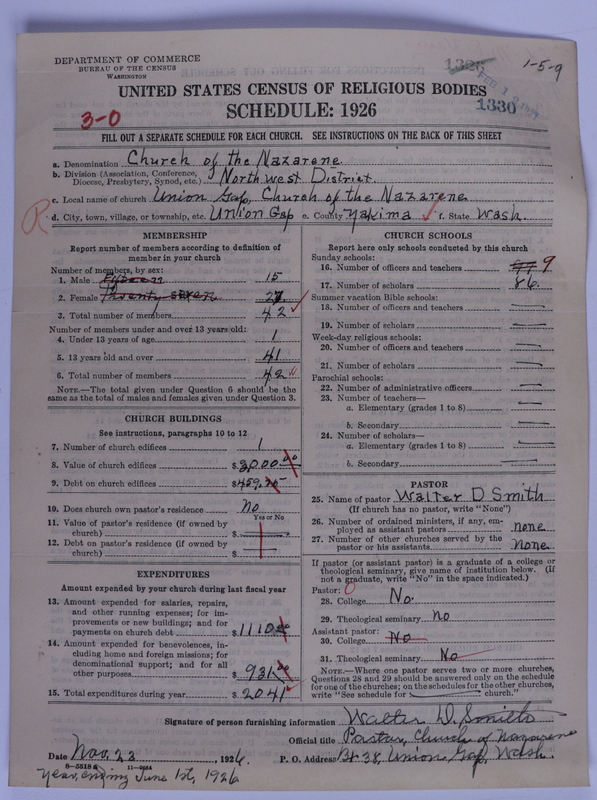 DEPARTMENT OF COMMERCE
BUREAU OF THE CENSUS
WASHINGTON
1326
1-5-9
FEB 1
1330
UNITED STATES CENSUS OF RELIGIOUS BODIES
SCHEDULE: 1926
3-0
FILL OUT A SEPARATE SCHEDULE FOR EACH CHURCH. SEE INSTRUCTIONS ON THE BACK OF THIS SHEET
a. Denomination Church of the Nazarene.
b. Division (Association, Conference, Diocese, Presbytery, Synod, etc.) Northwest District.
c. Local name of church Union Gap, Church of the Nazarene
R d. City, town, village, or township, etc. Union Gap e. County Yakima f. State Wash.
MEMBERSHIP
Report number of members according to definition of
member in your church
Number of members, by sex:
1. Male Fifteen 15
2. Female Twenty seven 27
3. Total number of members 42
Number of members under and over 13 years old:
4. Under 13 years of age 1
5. 13 years old and over 41
6. Total number of members 42
NOTE.—The total given under Question 6 should be the
same as the total of males and females given under Question 3.
CHURCH BUILDINGS
See instructions, paragraphs 10 to 12
7. Number of church edifices 1
8. Value of church edifices $3000.00
9. Debt on church edifices $459.75
10. Does church own pastor's residence? No
Yes or No
11. Value of pastor's residence (if owned by
church) $
12. Debt on pastor's residence (if owned by
church) $
EXPENDITURES
Amount expended by your church during last fiscal year
13. Amount expended for salaries, repairs,
and other running expenses; for im-
provements or new buildings; and for
payments on church debt $1110
14. Amount expended for benevolences, in-
cluding home and foreign missions; for
denominational support; and for all
other purposes $931.00
15. Total expenditures during year $2041
CHURCH SCHOOLS
Report here only schools conducted by this church
Sunday schools:
16. Number of officers and teachers 9
17. Number of scholars 86.
Summer vacation Bible schools:
18. Number of officers and teachers
19. Number of scholars
Week-day religious schools:
20. Number of officers and teachers
21. Number of scholars
Parochial schools:
22. Number of administrative officers
23. Number of teachers—
a. Elementary (grades 1 to 8)
b. Secondary
24. Number of scholars—
a. Elementary (grades 1 to 8)
b. Secondary
PASTOR
25. Name of pastor Walter D Smith
(If church has no pastor, write "None")
26. Number of ordained ministers, if any, em-
ployed as assistant pastors none
27. Number of other churches served by the
pastor or his assistants None
If pastor (or assistant pastor) is a graduate of a college or
theological seminary, give name of institution below. (If
not a graduate, write "No" in the space indicated.)
Pastor: 0
28. College No.
29. Theological seminary no
Assistant pastor:
30. College No
31. Theological seminary No
NOTE.—Where one pastor serves two or more churches,
Questions 28 and 29 should be answered only on the schedule
for one of the churches; on the schedules for the other churches,
write "See schedule for church."
Signature of person furnishing information Walter D. Smith
Official title Pastor, Church of Nazarene
Date Nov. 23, 1926. P. O. Address Bx 38, Union Gap, Wash.
8-5518a 11-9054
Year, ending June 1st, 1926